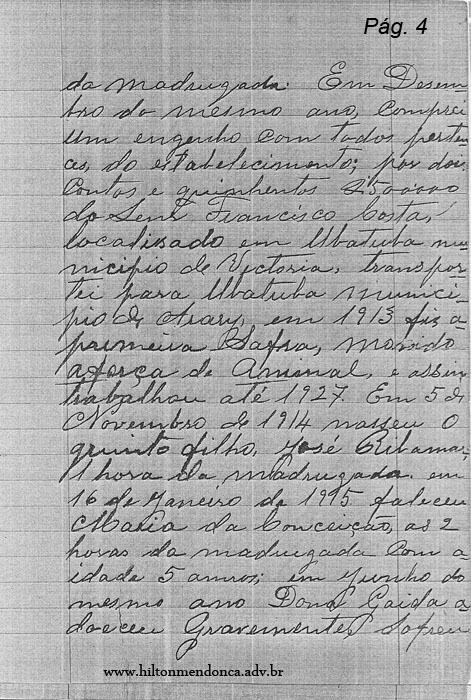 Pág. 4
da madrugada. Em Desem-
bro do mesmo ano, comprei
um engenho com todos perten-
cas, do estabelecimento; por dois
Contos e quinhentos 2500000
do Senr Francisco Costa,
localisado em Ubatuba mu-
nicipio de Victoria, transpor-
tei para Ubatuba munici-
pio de Arary, em 1913 fis a
primeira Safra, movido
a força de Animal, e assim
trabalhou até 1927. Em 5 de
Novembro de 1914 nasseu o
quinto filho, José Ribamar,
1 hora da madrugada. em
16 de Janeiro de 1915 faleceu
Maria da Conceição, as 2
horas da madrugada com a
idade 5 annos; em Junho do
mesmo ano Dona Caida a-
doeceu Gravemente Sofreu
www.hiltonmendonca.adv.br